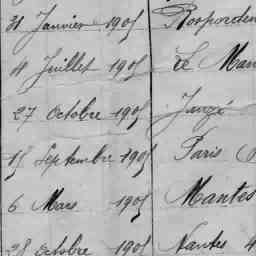 31 Janvier 1905 Rosporden
11 Juillet 1905 Le Man
27 Octobre 1905 Janzé
15 Septembre 1905 Paris
6 Mars 1905 Mantes
28 Octobre 1905 Nantes 4